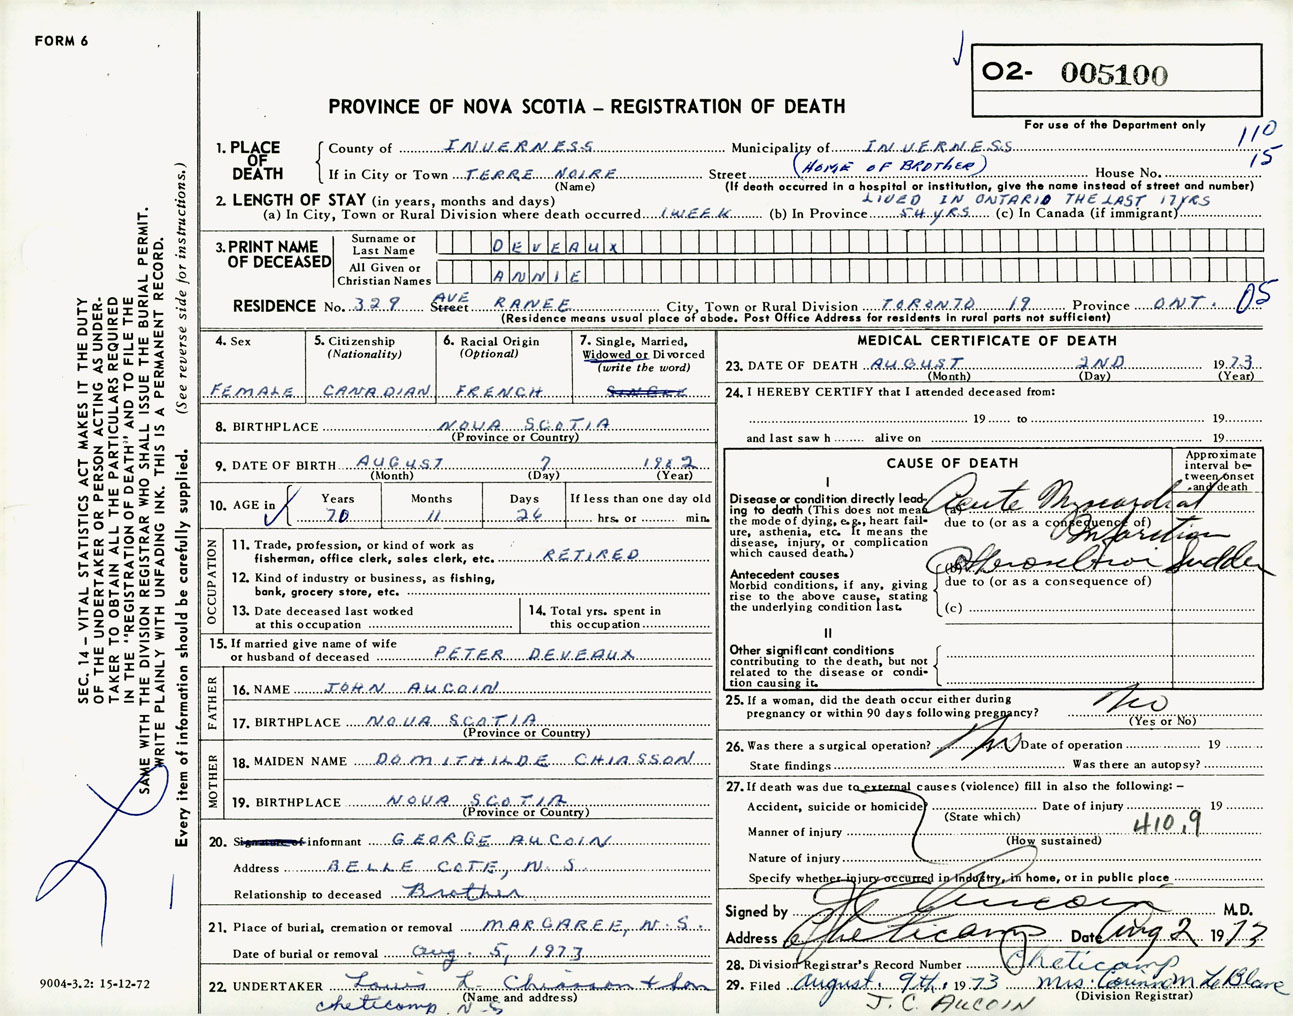 FORM 6
O2- 005100
For use of the Department only
110
15
PROVINCE OF NOVA SCOTIA – REGISTRATION OF DEATH
1. PLACE OF DEATH
County of INVERNESS Municipality of INVERNESS
(HOME OF BROTHER)
If in City or Town TERRE NOIRE Street House No.
(Name) (If death occurred in a hospital or institution, give the name instead of street and number)
2. LENGTH OF STAY (in years, months and days) LIVED IN ONTARIO THE LAST 17 YRS
(a) In City, Town or Rural Division where death occurred 1 WEEK (b) In Province 54 YRS (c) In Canada (if immigrant)
3. PRINT NAME OF DECEASED
Surname or Last Name DEVEAUX
All Given or Christian Names ANNIE
RESIDENCE No. 329 Street AVE RANEE City, Town or Rural Division TORONTO 19 Province ONT. 05
(Residence means usual place of abode. Post Office Address for residents in rural parts not sufficient)
4. Sex
FEMALE
5. Citizenship
(Nationality)
CANADIAN
6. Racial Origin
(Optional)
FRENCH
7. Single, Married,
Widowed or Divorced
(write the word)
SINGLE
8. BIRTHPLACE NOVA SCOTIA
(Province or Country)
9. DATE OF BIRTH AUGUST 7 1902
(Month) (Day) (Year)
10. AGE in
Years Months Days If less than one day old
70 11 26 hrs. or min.
OCCUPATION
11. Trade, profession, or kind of work as
fisherman, office clerk, sales clerk, etc. RETIRED
12. Kind of industry or business, as fishing,
bank, grocery store, etc.
13. Date deceased last worked
at this occupation
14. Total yrs. spent in
this occupation
15. If married give name of wife
or husband of deceased PETER DEVEAUX
FATHER
16. NAME JOHN AUCOIN
17. BIRTHPLACE NOVA SCOTIA
(Province or Country)
MOTHER
18. MAIDEN NAME DOMITHILDE CHIASSON
19. BIRTHPLACE NOVA SCOTIA
(Province or Country)
20. Signature of informant GEORGE AUCOIN
Address BELLE COTE, N.S.
Relationship to deceased Brother
21. Place of burial, cremation or removal MARGAREE, N.S.
Date of burial or removal Aug. 5, 1973
22. UNDERTAKER Louis L. Chiasson & Son
(Name and address)
Cheticamp N-S
MEDICAL CERTIFICATE OF DEATH
23. DATE OF DEATH AUGUST 2ND 1973
(Month) (Day) (Year)
24. I HEREBY CERTIFY that I attended deceased from:
19 to 19
and last saw h alive on 19
CAUSE OF DEATH
Approximate interval between onset and death
I
Disease or condition directly leading to death (This does not mean the mode of dying, e.g., heart failure, asthenia, etc. It means the disease, injury, or complication which caused death.)
(a) Acute Myocardial
due to (or as a consequence of)
Infarction
Antecedent causes
Morbid conditions, if any, giving rise to the above cause, stating the underlying condition last.
(b) Sudden
due to (or as a consequence of)
(c)
II
Other significant conditions
contributing to the death, but not related to the disease or condition causing it.
25. If a woman, did the death occur either during
pregnancy or within 90 days following pregnancy? No
(Yes or No)
26. Was there a surgical operation? No Date of operation 19
State findings Was there an autopsy?
27. If death was due to external causes (violence) fill in also the following: –
Accident, suicide or homicide Date of injury 19
(State which)
Manner of injury 410.9
(How sustained)
Nature of injury
Specify whether injury occurred in industry, in home, or in public place
Signed by Aucoin M.D.
Address Cheticamp Date Aug 2 1973
28. Division Registrar's Record Number Cheticamp
29. Filed August 9th. 1973
(Division Registrar)
J. C. AUCOIN
SEC. 14 – VITAL STATISTICS ACT MAKES IT THE DUTY
OF THE UNDERTAKER OR PERSON ACTING AS UNDERTAKER
TO OBTAIN ALL THE PARTICULARS REQUIRED
IN THE "REGISTRATION OF DEATH" AND TO FILE THE
SAME WITH THE DIVISION REGISTRAR WHO SHALL ISSUE THE BURIAL PERMIT.
WRITE PLAINLY WITH UNFADING INK. THIS IS A PERMANENT RECORD.
Every item of information should be carefully supplied. (See reverse side for instructions.)
9004-3.2: 15-12-72